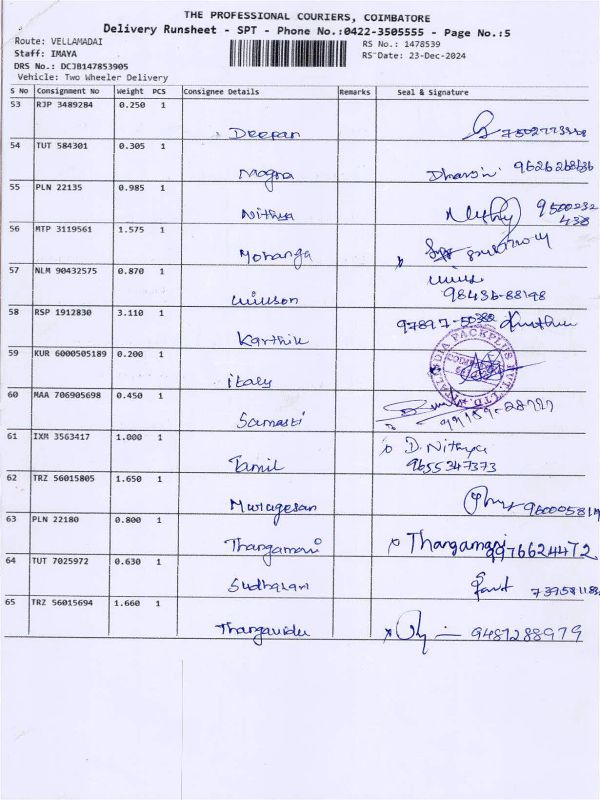 THE PROFESSIONAL COURIERS, COIMBATORE
Delivery Runsheet - SPT - Phone No.:0422-3505555 - Page No.:5
Route: VELLAMADAI
RS No.: 1478539
Staff: IMAYA
RS Date: 23-Dec-2024
DRS No.: DCJB147853905
Vehicle: Two Wheeler Delivery
S No Consignment No Weight PCS Consignee Details Remarks Seal & Signature
53 RJP 3489284 0.250 1
Deepan
54 TUT 584301 0.305 1
Dharsni 9626268636
Mogna
55 PLN 22135 0.985 1
9500232
Nithya 438
56 MTP 3119561 1.575 1
Mohanga
57 NLM 90432575 0.870 1
98436-88198
Wilson
58 RSP 1912830 3.110 1
97897-50382
Karthik
59 KUR 6000505189 0.200 1
Italy
60 MAA 706905698 0.450 1
61 IXM 3563417 1.000 1
D. Nithya
Tamil 9655347373
62 TRZ 56015805 1.650 1
Murugesan
63 PLN 22180 0.800 1
Thangamani Thangamani 9976624472
64 TUT 7025972 0.630 1
Sudharsan
65 TRZ 56015694 1.660 1
Thangavidu 9487288979